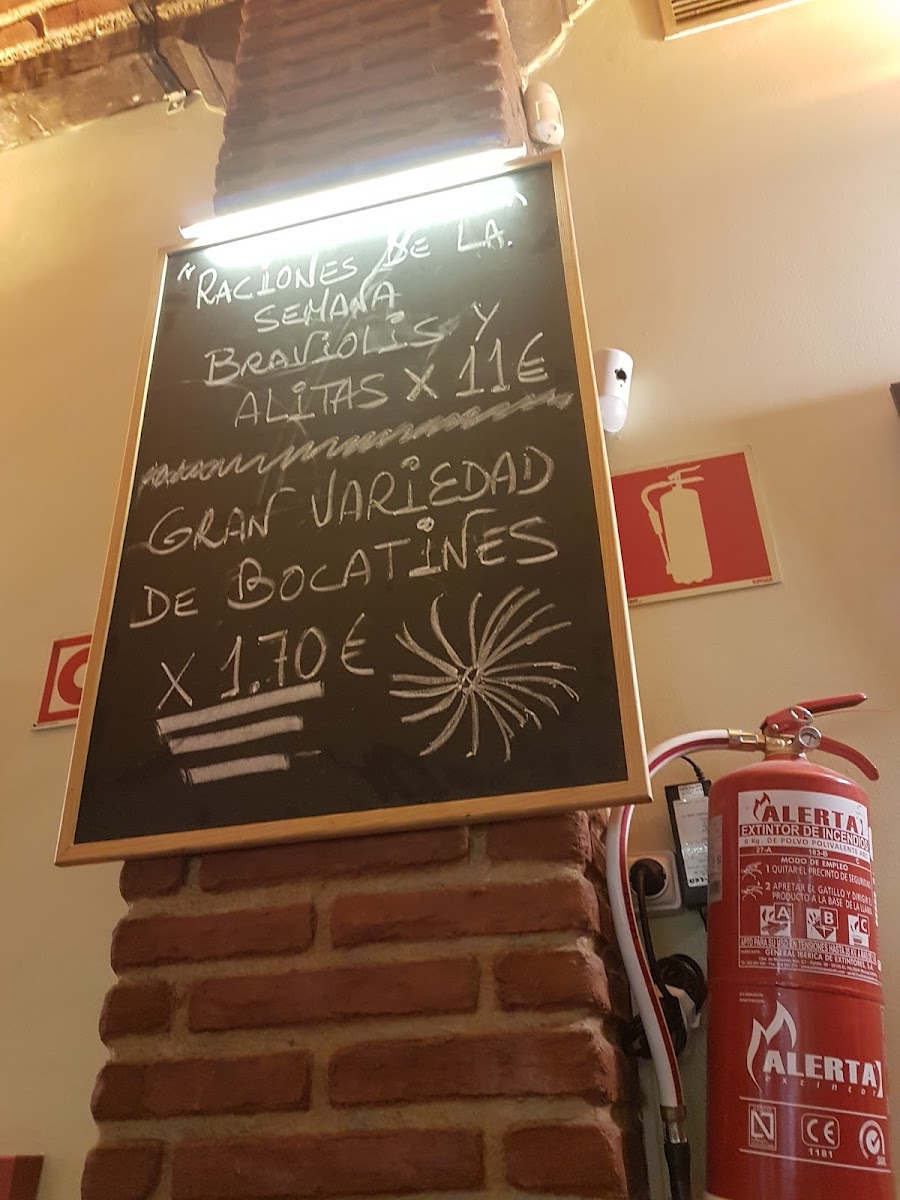 "RACIONES DE LA.
SEMANA
BRAVIOLIS Y
ALITAS X 11€
GRAN VARIEDAD
DE BOCATINES
X 1.70€
ALERTA
EXTINTOR DE INCENDIOS
6 Kg. DE POLVO POLIVALENTE ABC
27-A 183-B C
MODO DE EMPLEO
1 QUITAR EL PRECINTO DE SEGURIDAD
2 APRETAR EL GATILLO Y DIRIGIR EL
PRODUCTO A LA BASE DE LA LLAMA
A B C
GENERAL IBERICA DE EXTINTORES, S.A.
ALERTA
extintor
N CE
1181